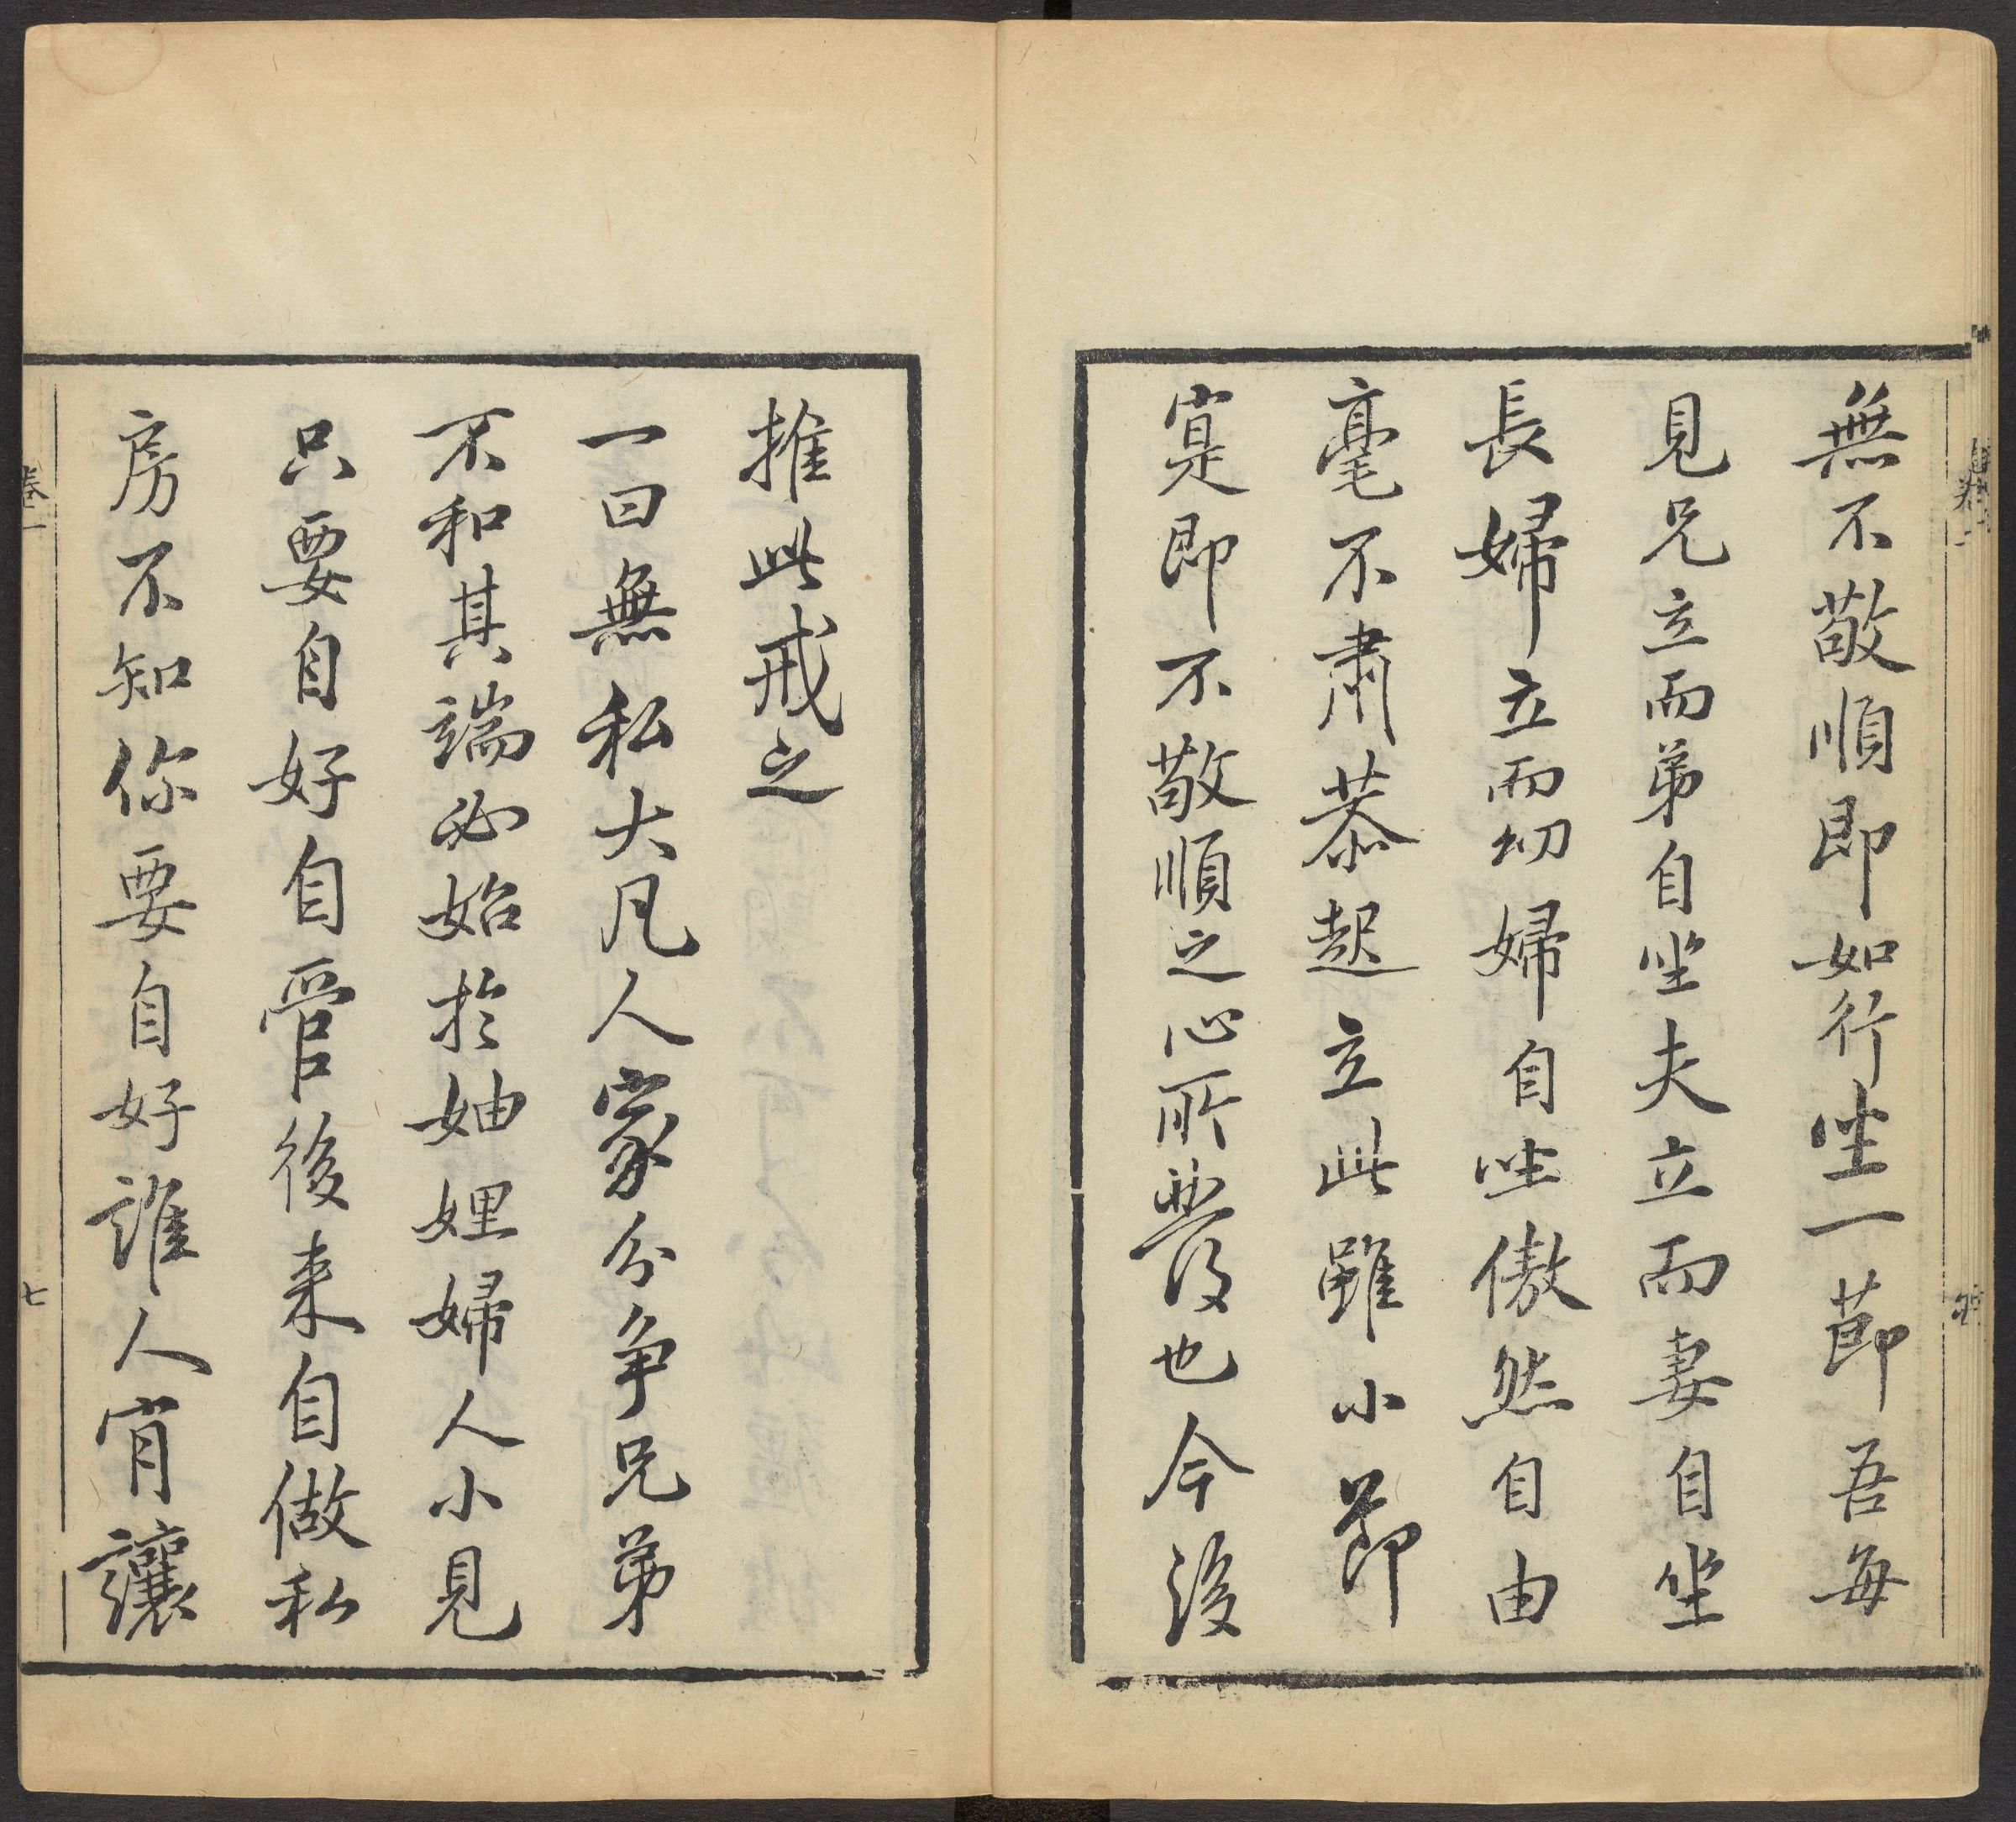 無不敬順即如行坐一節吾每
見兄立而弟自坐夫立而妻自坐
長婦立而㓜婦自坐傲然自由
毫不肅恭起立此雖小節
寔即不敬順之心所發也今後
推此戒之
一曰無私大凡人家分争兄弟
不和其端必始於妯娌婦人小見
只要自好自管後来自做私
房不知你要自好誰人肯讓
卷一
七